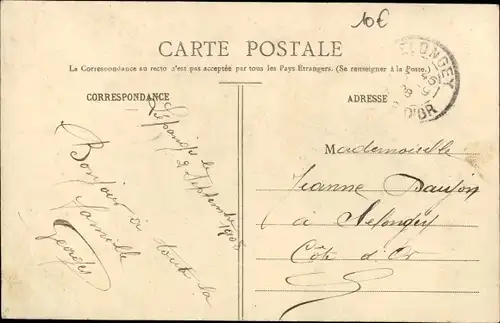 10€
CARTE POSTALE
La Correspondance au recto n'est pas acceptée par tous les Pays Etrangers. (Se renseigner à la poste.)
CORRESPONDANCE
le
2 Septembre 1905
Bonjour à toute la
famille
Georges
ADRESSE
SELONGEY
D'OR
Mademoiselle
Jeanne
à Selongey
Côte d'Or